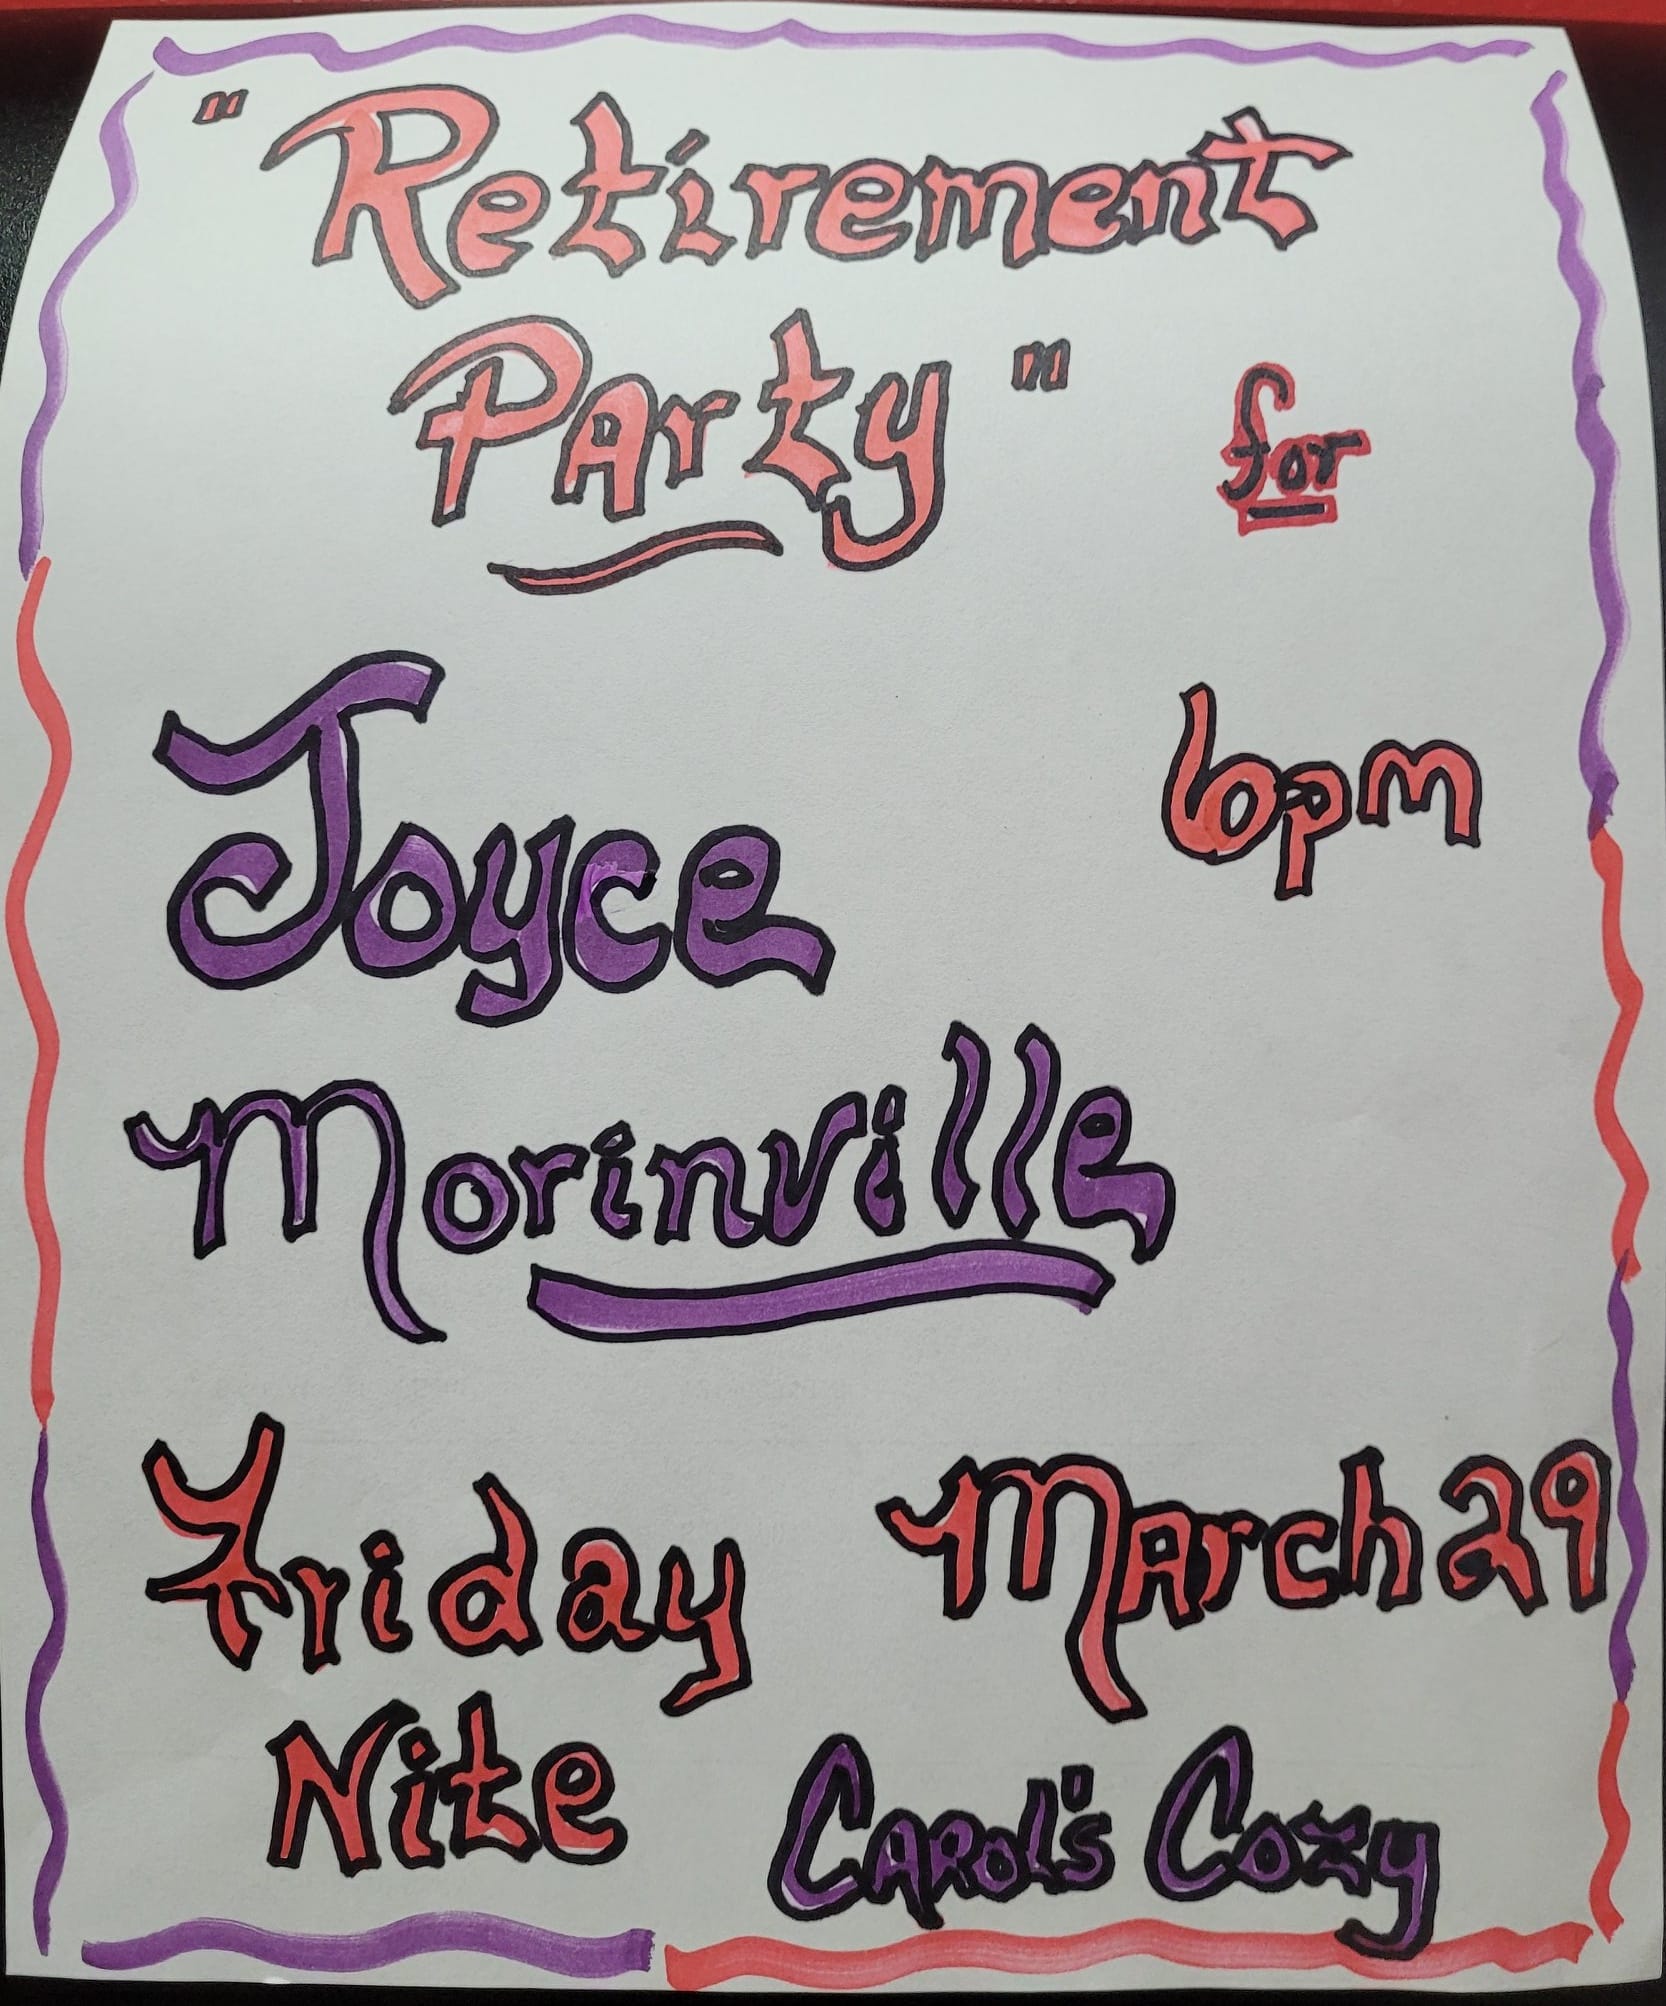 "Retirement
Party" for
Joyce 6pm
Morinville
Friday March 29
Nite Carol's Cozy